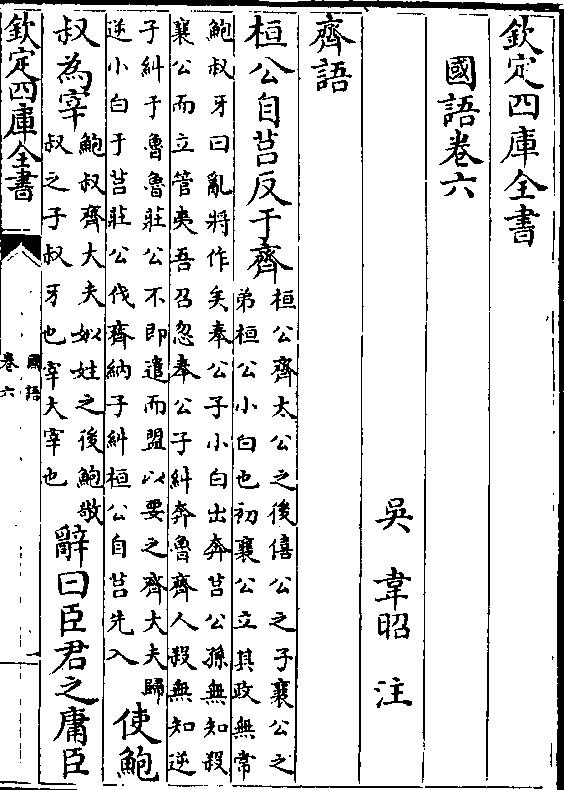 欽定四庫全書
國語卷六
吳　韋昭　注
齊語
桓公自莒反于齊
桓公齊太公之後僖公之子襄公之
弟桓公小白也初襄公立其政無常
鮑叔牙曰亂將作矣奉公子小白出奔莒公孫無知殺
襄公而立管夷吾召忽奉公子糾奔魯齊人殺無知逆
子糾于魯魯莊公不即遣而盟以要之齊大夫歸
逆小白于莒莊公伐齊納子糾桓公自莒先入
使鮑
叔為宰
鮑叔齊大夫姒姓之後鮑敬
叔之子叔牙也宰大宰也
辭曰臣君之庸臣
欽定四庫全書
國語
卷六